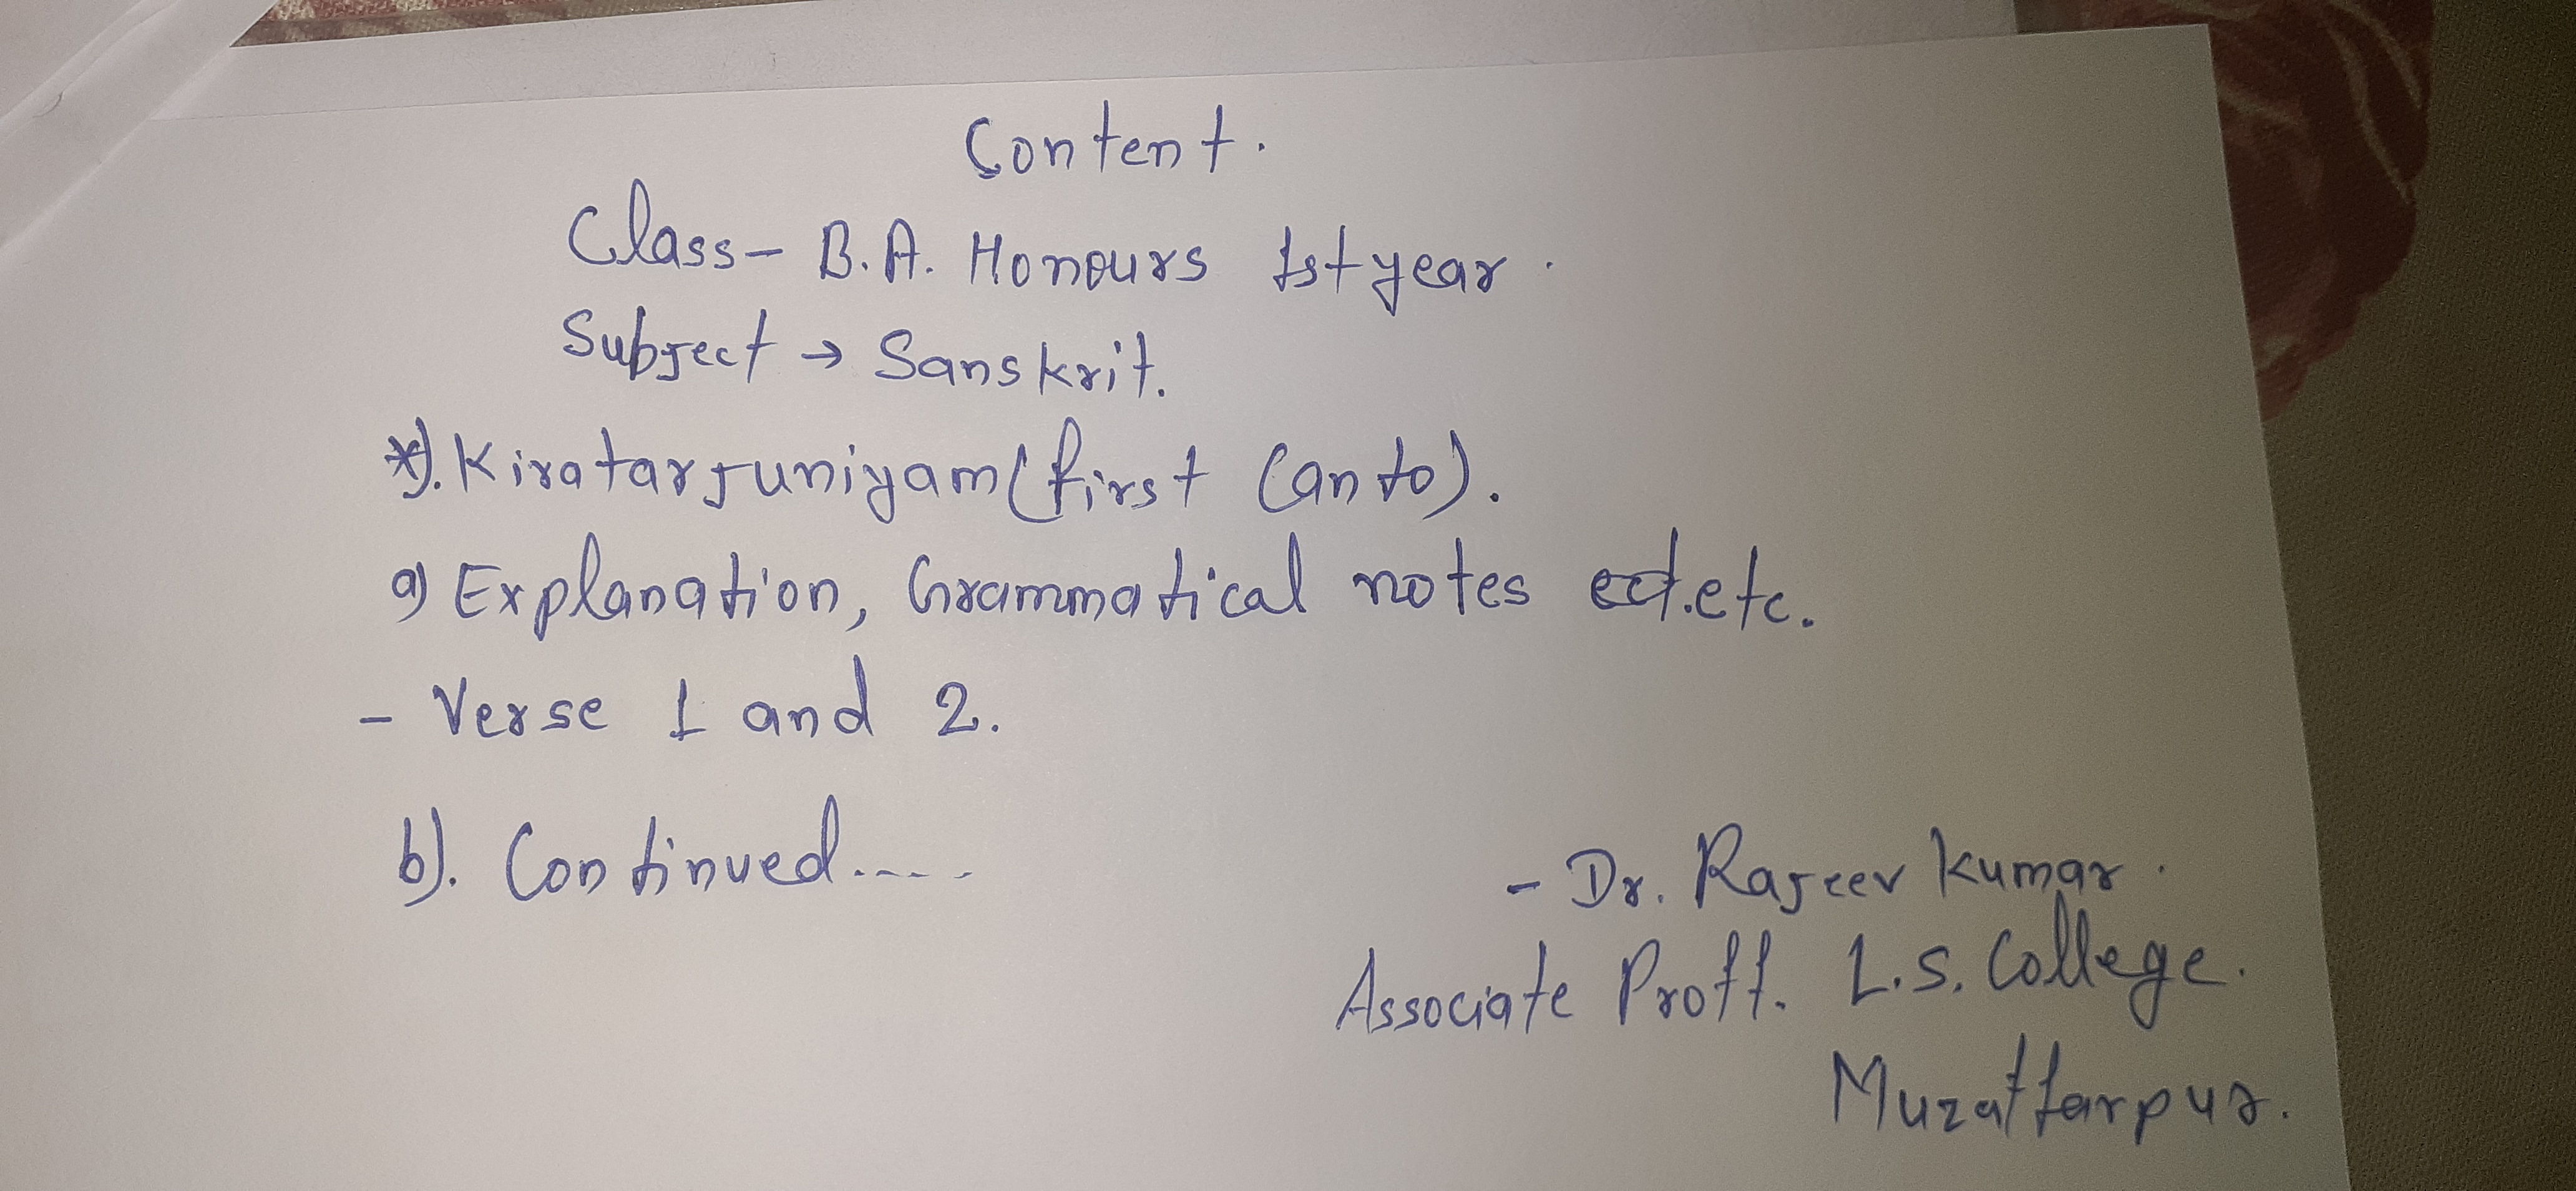 Content.
Class- B.A. Honours 1st year.
Subject → Sanskrit.
*). Kiratarjuniyam (first Canto).
a) Explanation, Grammatical notes ect. etc.
- Verse 1 and 2.
b). Continued.....
- Dr. Rajeev Kumar.
Associate Proff. L.S. College.
Muzaffarpur.